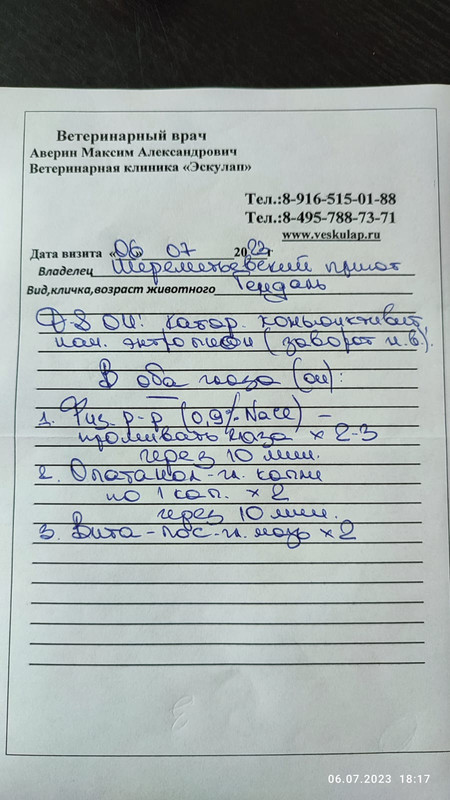 Ветеринарный врач
Аверин Максим Александрович
Ветеринарная клиника «Эскулап»
Тел.:8-916-515-01-88
Тел.:8-495-788-73-71
www.veskulap.ru
Дата визита «06 07 2023г
Владелец Шереметьевский приют
Вид,кличка,возраст животного Гендаль
D-S OU: катар. конъюнктивит,
нач. энтропион (заворот н.в.).
В оба глаза (OU):
1. Физ. р-р (0,9% NaCl) –
промывать глаза х 2-3
через 10 мин.
2. Опатанол - гл. капли
по 1 кап. х 2
через 10 мин.
3. Вита-Пос - гл. мазь х 2
06.07.2023 18:17